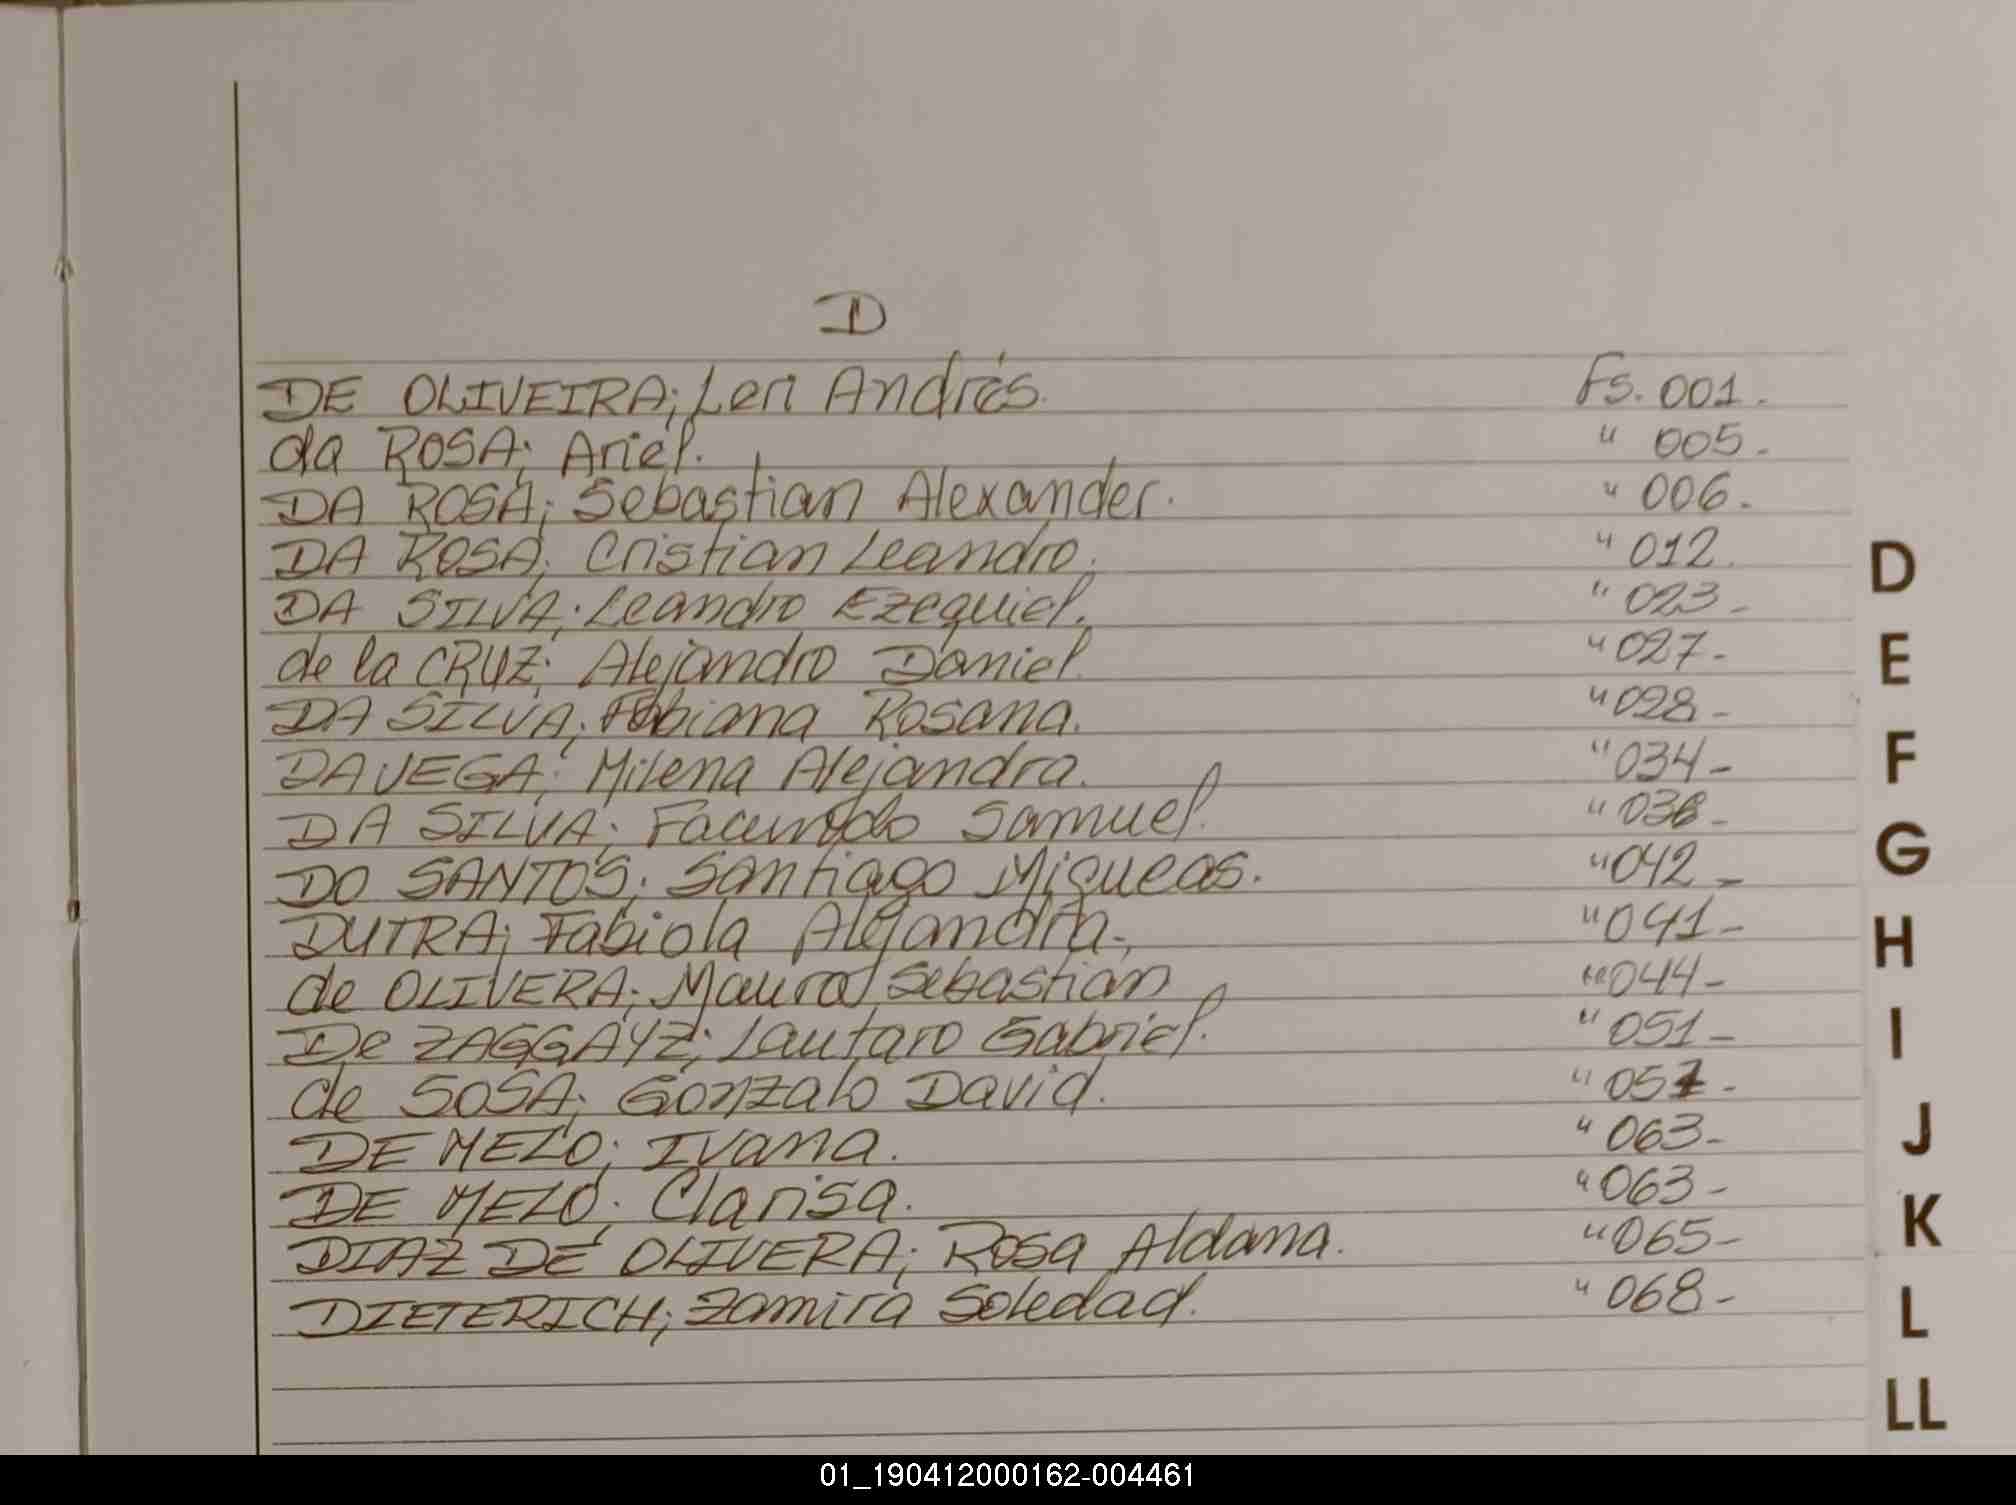 D
DE OLIVEIRA; Leri Andrés. Fs. 001.-
da ROSA; Ariel. " 005.-
DA ROSA; Sebastian Alexander. " 006.-
DA ROSA; Cristian Leandro. " 012.
DA SILVA; Leandro Ezequiel. " 023-
de la CRUZ; Alejandro Daniel. " 027-
DA SILVA; Fabiana Rosana. " 028-
DA VEGA; Milena Alejandra. " 034-
DA SILVA; Facundo Samuel. " 036-
DO SANTOS; Santiago Miqueas. " 042-
DUTRA; Fabiola Alejandra. " 041-
de OLIVERA; Mauro Sebastián " 044-
De ZAGGAYZ; Lautaro Gabriel. " 051-
de SOSA; Gonzalo David. " 057-
DE MELO; Ivana. " 063-
DE MELO; Clarisa. " 063-
DIAZ DE OLIVERA; Rosa Aldana. " 065-
DIETERICH; Zamira Soledad. " 068-
D
E
F
G
H
I
J
K
L
LL
01_190412000162-004461